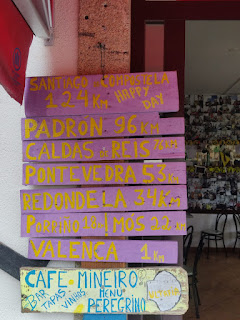 SANTIAGO D COMPOSTELA
124 KM HAPPY DAY
PADRON 96 KM
CALDAS D REIS 76 KM
PONTEVEDRA 53 KM
REDONDELA 34 KM
PORRIÑO MÓS 22 KM
VALENCA 1 KM
CAFE MINEIRO
BAR TAPAS VINHOS MENU
PEREGRINO